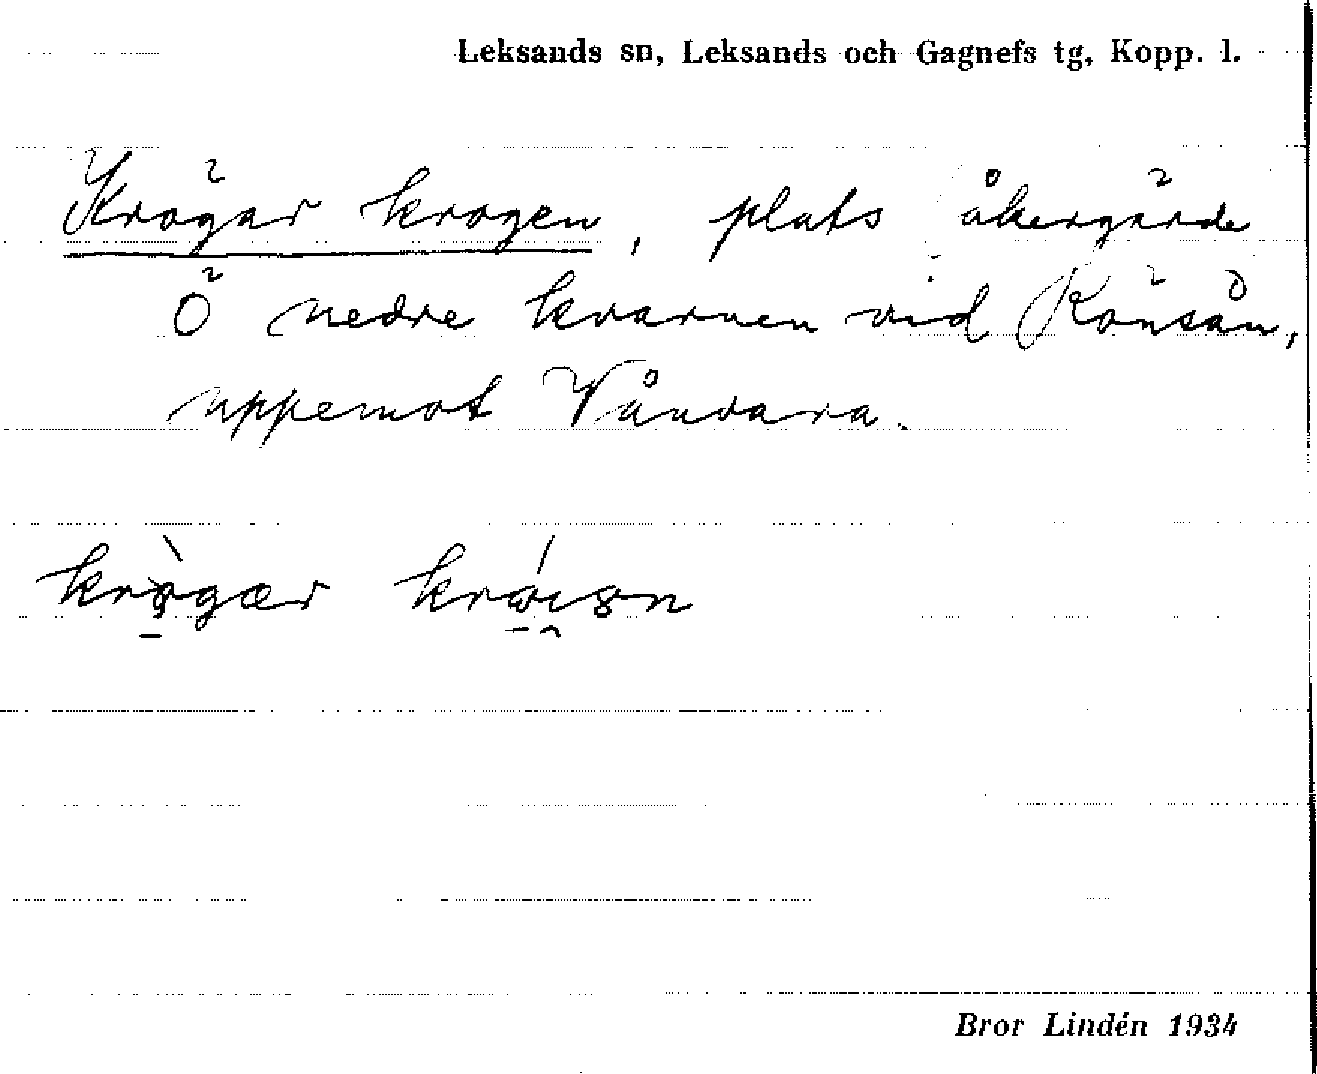 Leksands sn, Leksands och Gagnefs tg, Kopp. l.
Krögar krogen, plats åkergärde
Ö nedre kvarnen vid Rönsån,
uppemot Vånvara.
Bror Lindén 1934